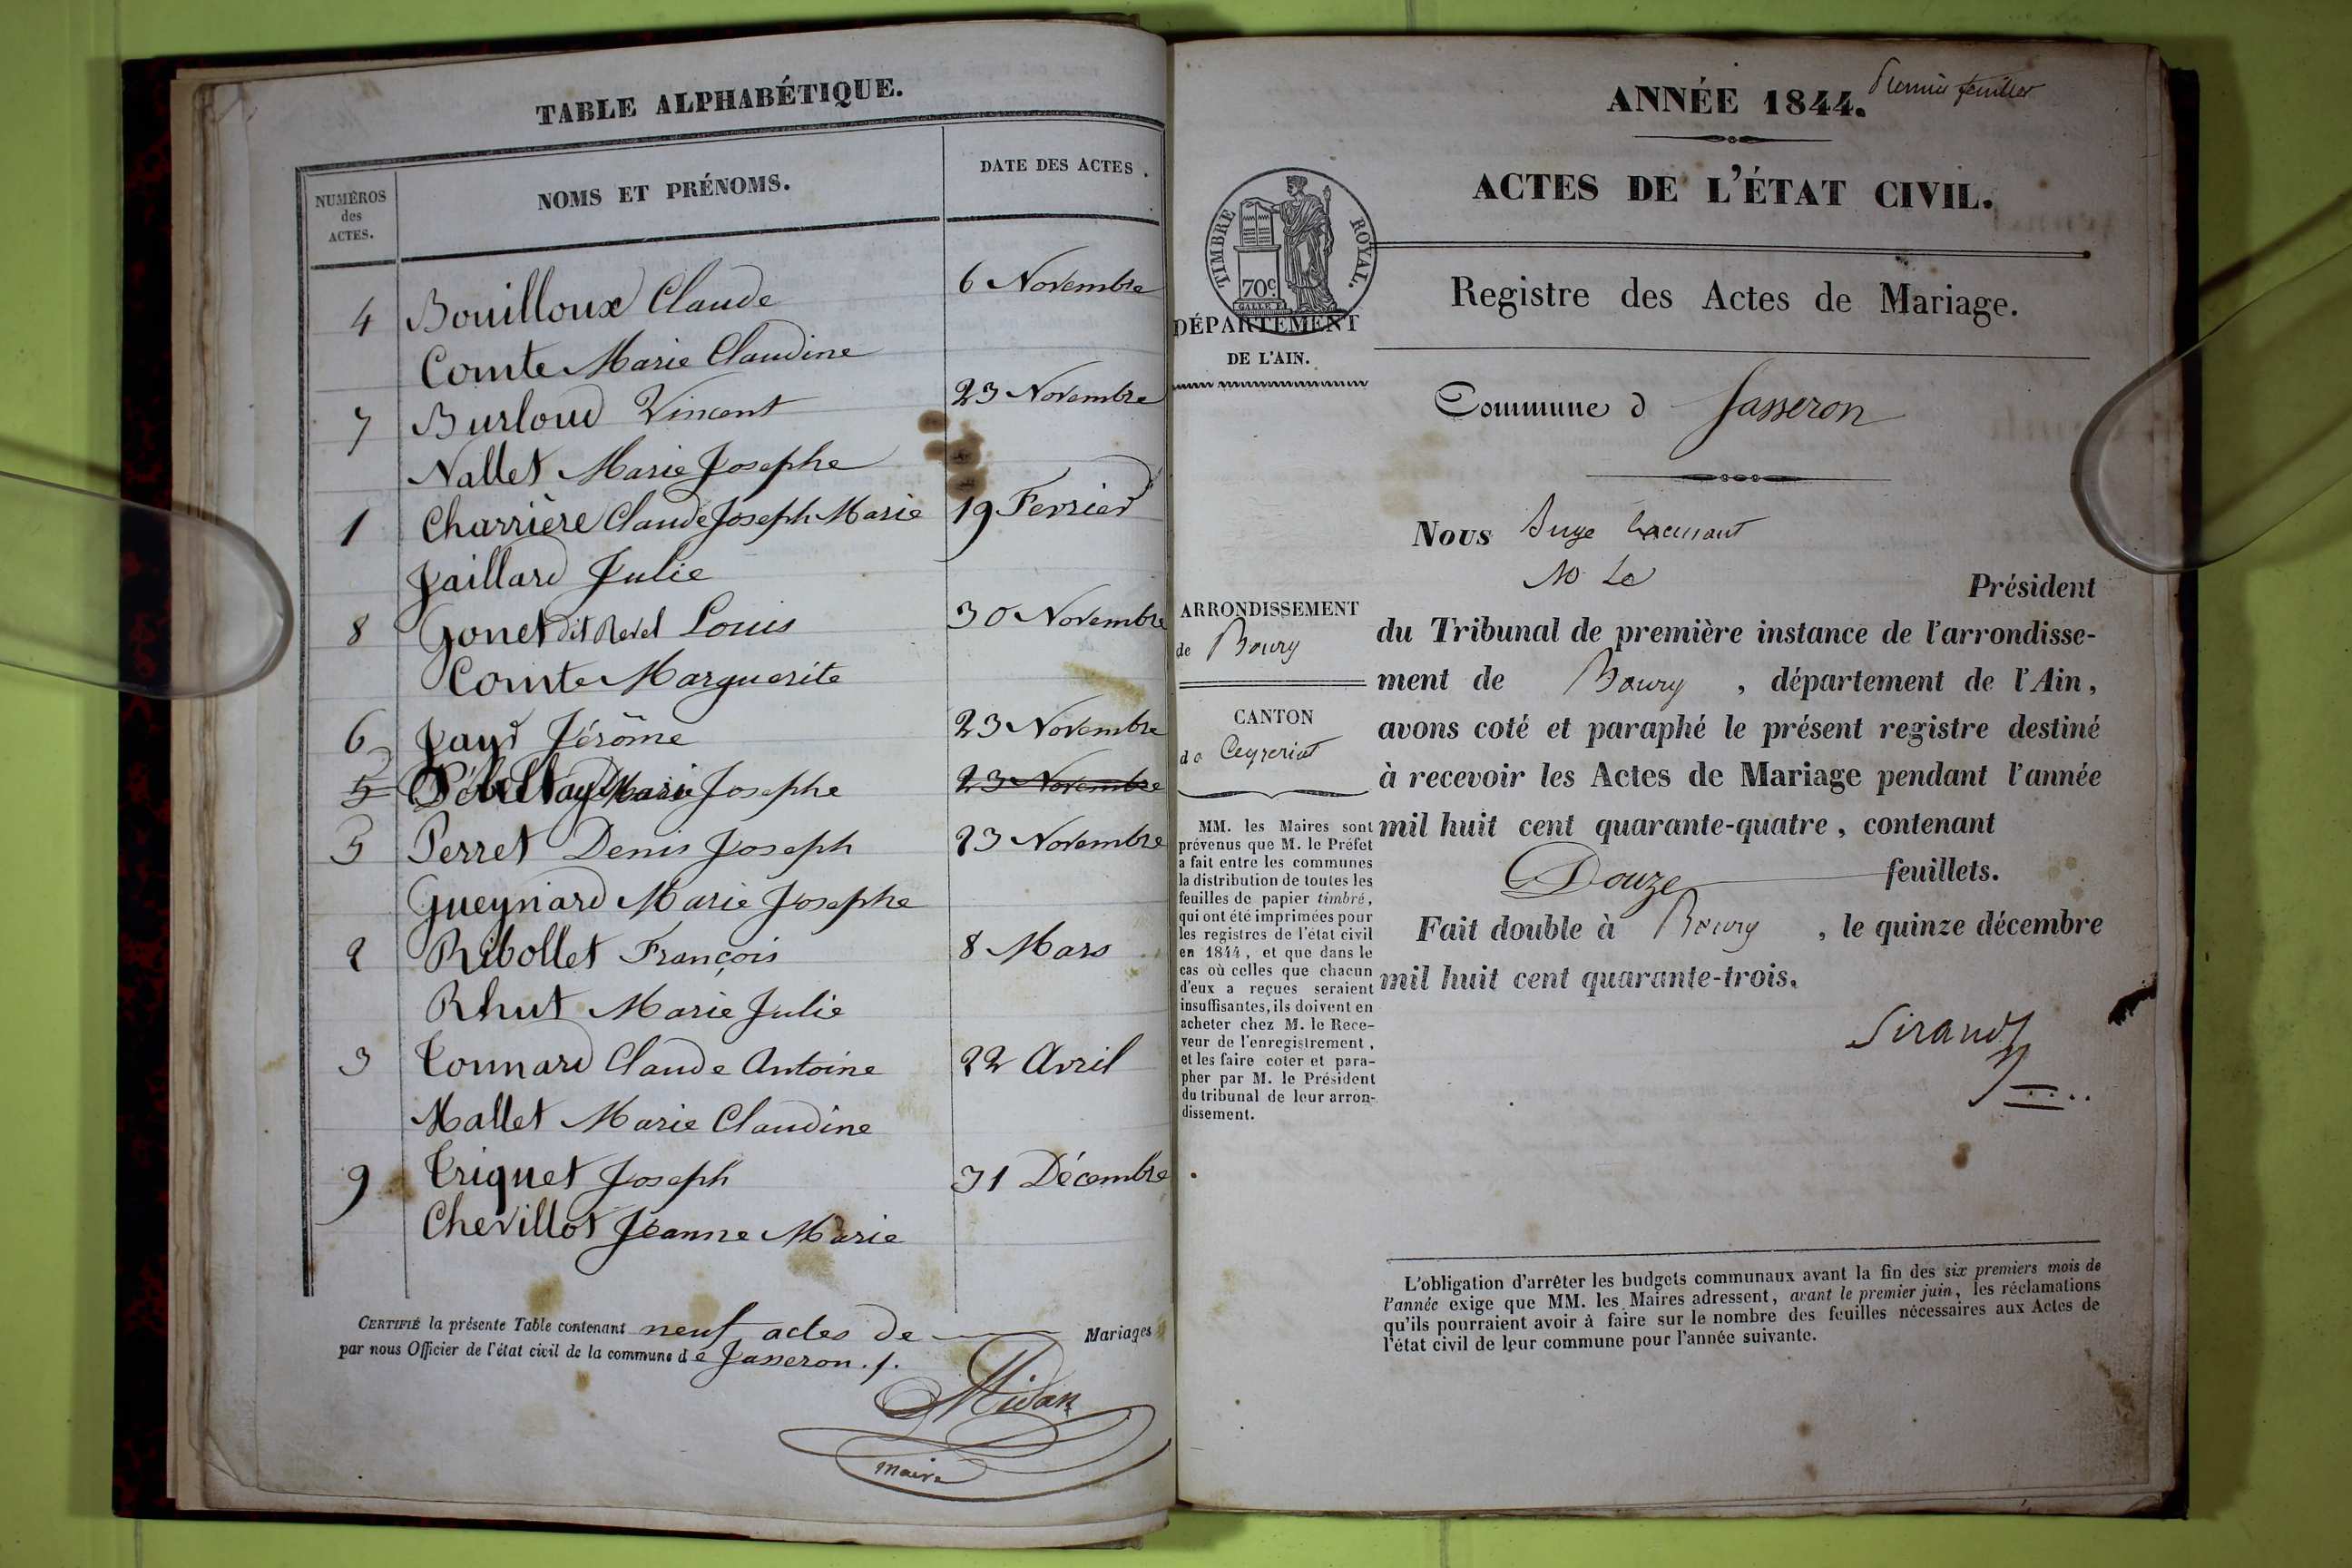 TABLE ALPHABÉTIQUE.
NUMÉROS des ACTES.
NOMS ET PRÉNOMS.
DATE DES ACTES.
4 Bouilloux Claude 6 Novembre
Comte Marie Claudine
7 Burloud Vincent 23 Novembre
Nallet Marie Josephe
1 Charrière Claude Joseph Marie 19 Fevrier
Jaillard Julie
8 Gonet dit Revel Louis 30 Novembre
Comte Marguerite
6 Jayr Jérôme 23 Novembre
5 Marie Josephe 23 Novembre
5 Perret Denis Joseph 23 Novembre
Gueynard Marie Josephe
2 Ribollet François 8 Mars
Rhut Marie Julie
3 Tonnard Claude Antoine 22 Avril
Mallet Marie Claudine
9 Triquet Joseph 31 Décembre
Chevillot Jeanne Marie
CERTIFIÉ la présente Table contenant neuf actes de Mariages
par nous Officier de l'état civil de la commune de Jasseron ./.
Midan
maire
Premier feuillet
ANNÉE 1844.
ACTES DE L'ÉTAT CIVIL.
TIMBRE ROYAL.
70c
DÉPARTEMENT
DE L'AIN.
Registre des Actes de Mariage.
Commune d Jasseron
Nous Juge
Président
du Tribunal de première instance de l'arrondisse-
ment de Bourg , département de l'Ain,
avons coté et paraphé le présent registre destiné
à recevoir les Actes de Mariage pendant l'année
mil huit cent quarante-quatre, contenant
Douze feuillets.
Fait double à Bourg , le quinze décembre
mil huit cent quarante-trois.
Sirand
ARRONDISSEMENT
de Bourg
CANTON
de Ceyzeriat
MM. les Maires sont
prévenus que M. le Préfet
a fait entre les communes
la distribution de toutes les
feuilles de papier timbré,
qui ont été imprimées pour
les registres de l'état civil
en 1844, et que dans le
cas où celles que chacun
d'eux a reçues seraient
insuffisantes, ils doivent en
acheter chez M. le Rece-
veur de l'enregistrement,
et les faire coter et para-
pher par M. le Président
du tribunal de leur arron-
dissement.
L'obligation d'arrêter les budgets communaux avant la fin des six premiers mois de
l'année exige que MM. les Maires adressent, avant le premier juin, les réclamations
qu'ils pourraient avoir à faire sur le nombre des feuilles nécessaires aux Actes de
l'état civil de leur commune pour l'année suivante.